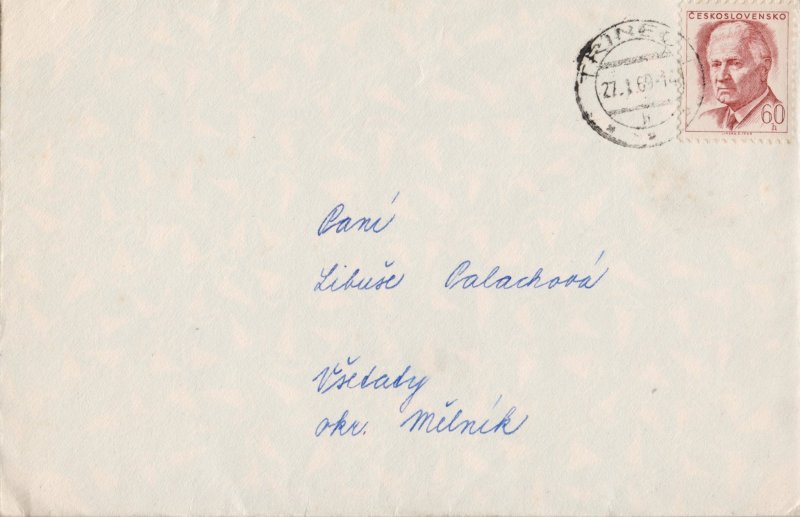 ČESKOSLOVENSKO
60
h
TŘINEC
27.1.69-14
h
Paní
Libuše Palachová
Všetaty
okr. Mělník